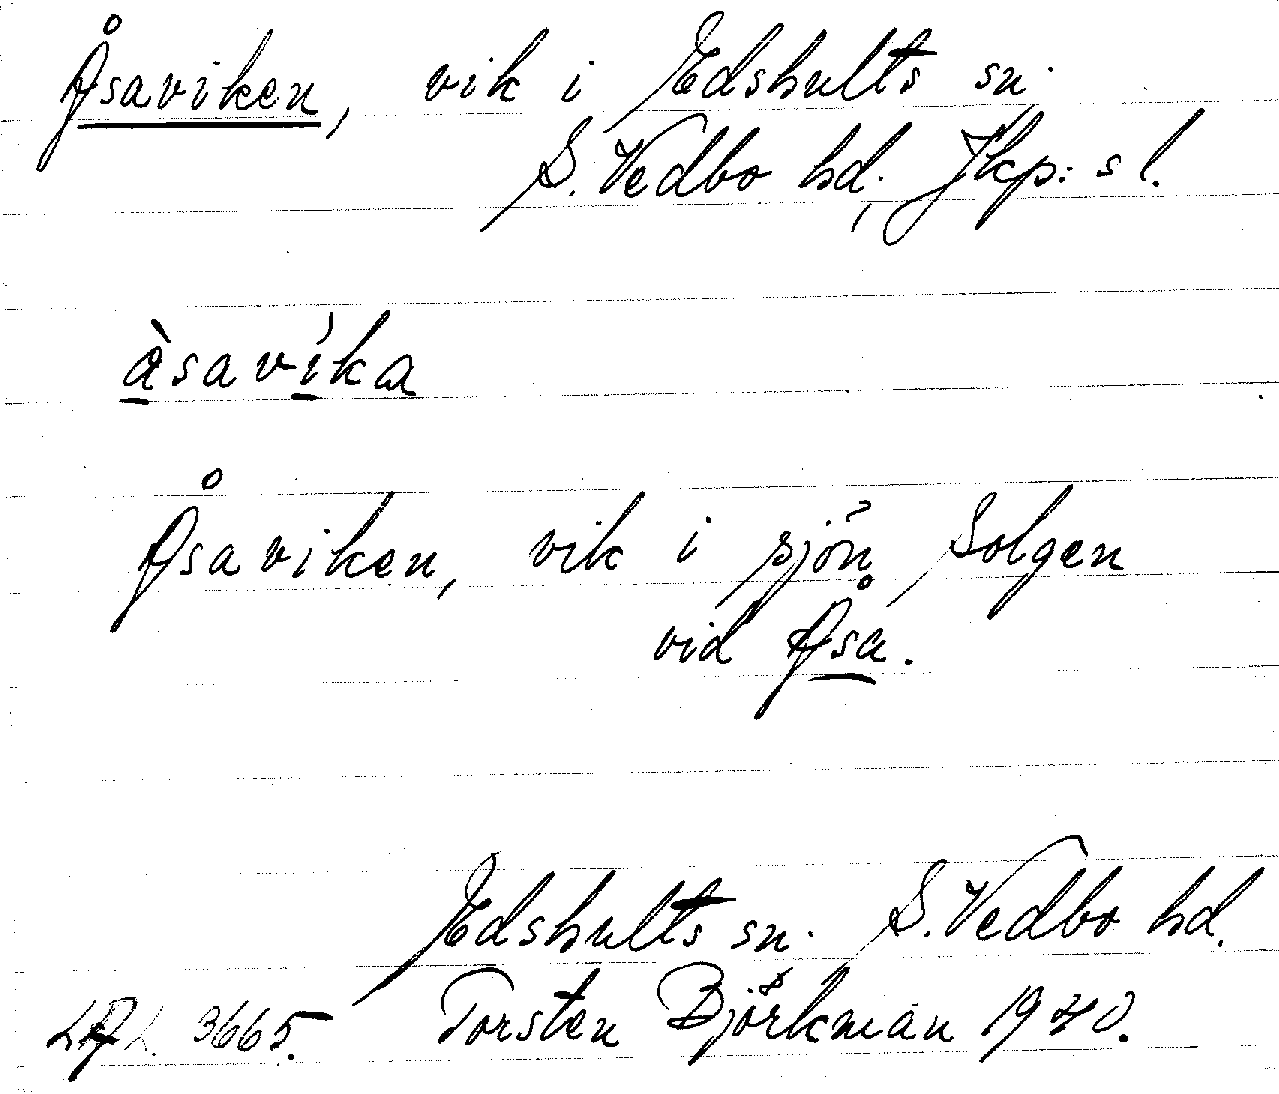 Åsaviken, vik i Edshults sn.
S. Vedbo hd, Jkp: s l.
àsavíka
Åsaviken, vik i sjön Solgen
vid Åsa.
Edshults sn. S. Vedbo hd.
LAL. 3665. Torsten Björkman 1940.